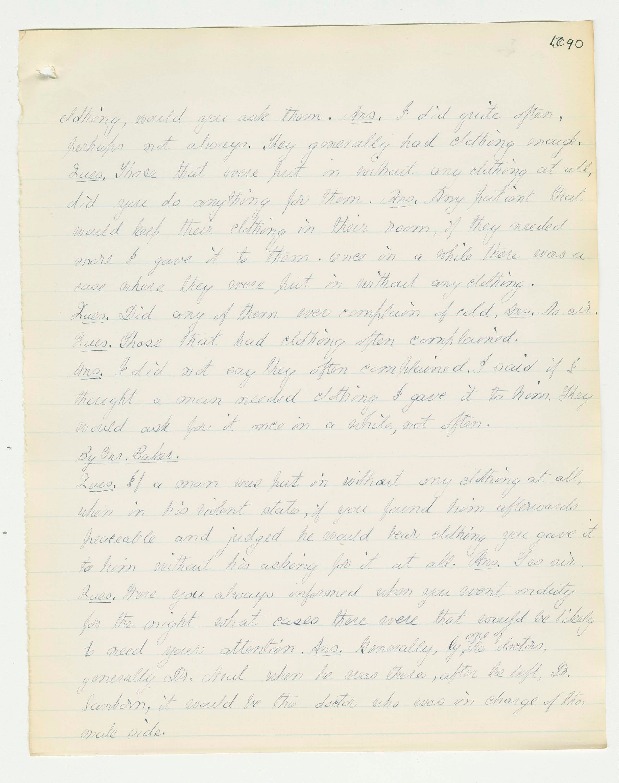 1090
clothing, would you ask them. Ans. I did quite often,
perhaps not always. They generally had clothing enough.
Ques. Those that were put in without any clothing at all,
did you do anything for them. Ans. Any patient that
would keep their clothing in their room, if they needed
more I gave it to them. once in a while there was a
case where they were put in without any clothing.
Ques. Did any of them ever complain of cold, Ans. No sir.
Ques. Those that had clothing often complained.
Ans. I did not say they often complained. I said if I
thought a man needed clothing I gave it to him. They
would ask for it once in a while, not often.
By Mr. Baker.
Ques. If a man was put in without any clothing at all,
when in his violent state, if you found him afterwards
peaceable and judged he would bear clothing you gave it
to him without his asking for it at all. Ans. Yes sir.
Ques. Were you always informed when you went on duty
for the night what cases there were that would be likely
to need your attention. Ans. Generally, by one of the doctors.
generally Dr. when he was there, after he left, Dr.
Sanborn, it would be the doctor who was in charge of the
male side.